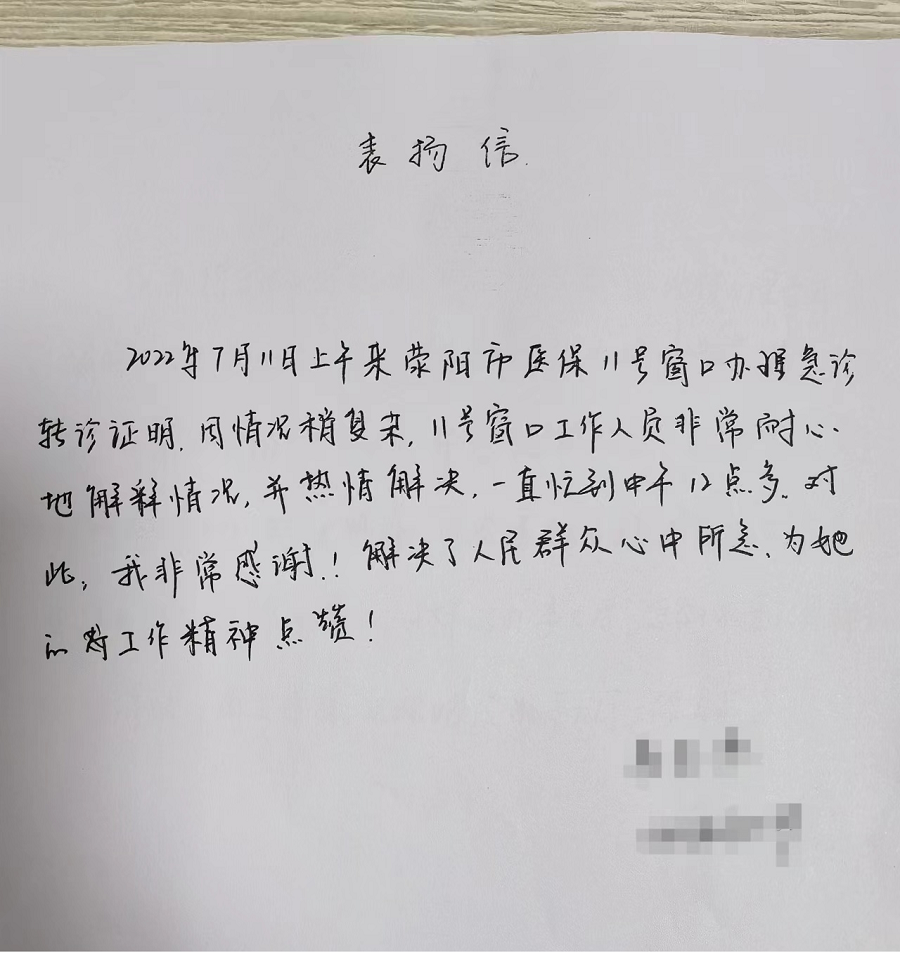 表扬信.
2022年7月11日上午来荥阳市医保11号窗口办理急诊
转诊证明.因情况稍复杂,11号窗口工作人员非常耐心
地解释情况,并热情解决,一直忙到中午12点多.对
此,我非常感谢!解决了人民群众心中所急、为她
的工作精神点赞!